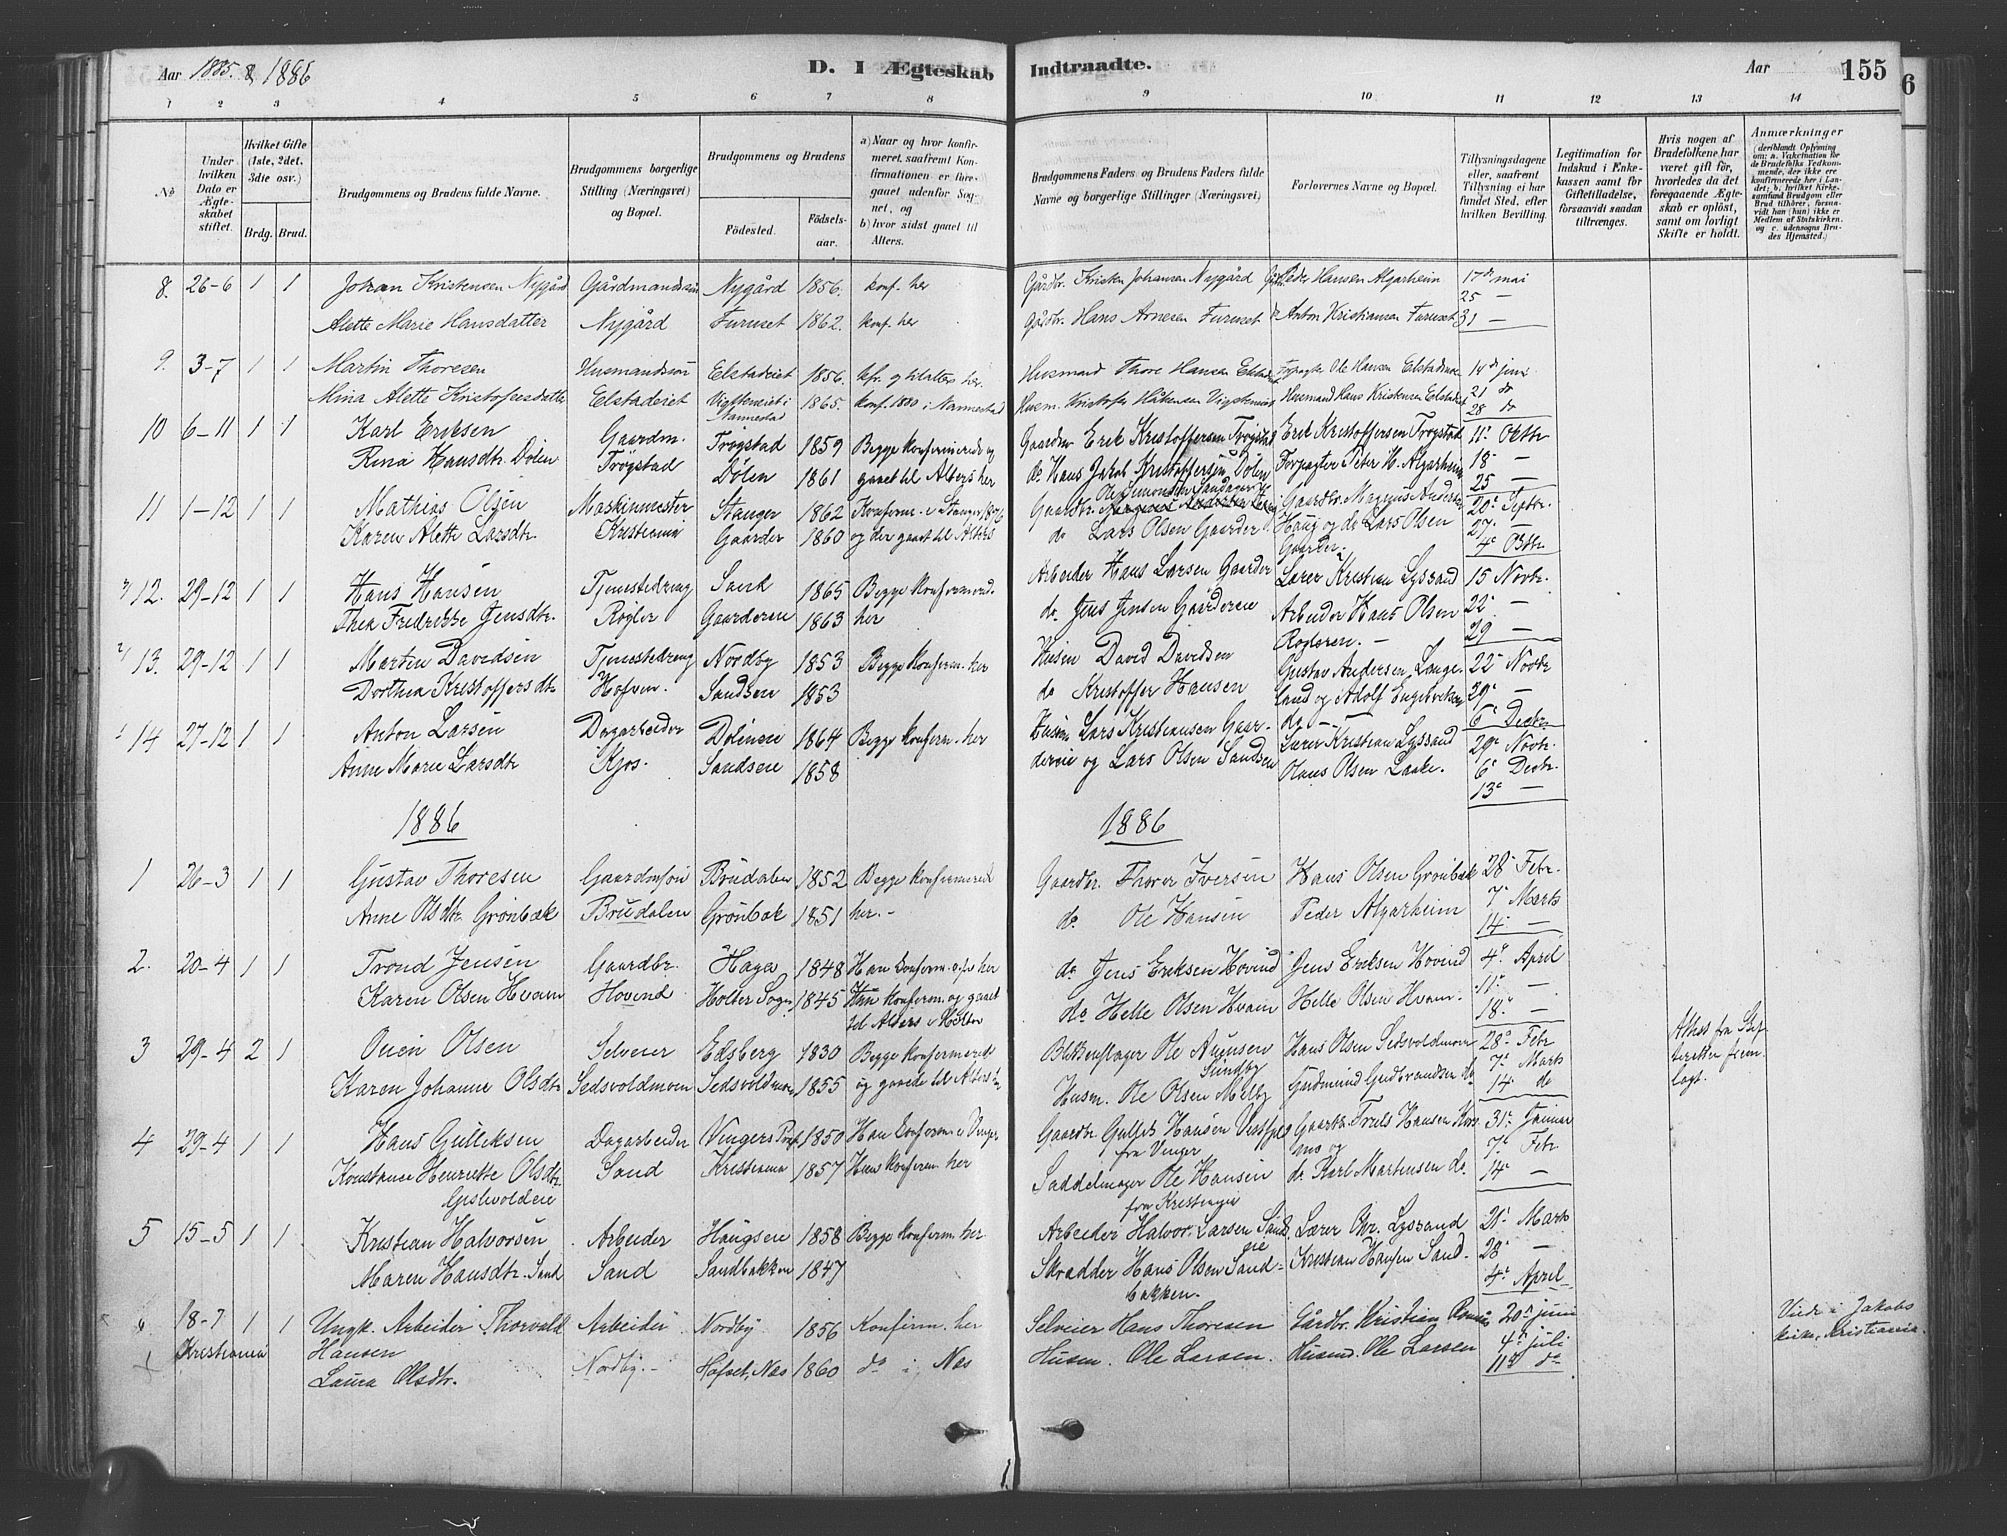 Aar 1885. & 1886
D. I Ægteskab Indtraadte.
Aar
155
6
1 2 3 4 5 6 7 8 9 10 11 12 13 14
No
Under hvilken Dato er Ægteskabet stiftet.
Hvilket Gifte (1ste, 2det, 3die osv.)
Brdg. Brud.
Brudgommens og Brudens fulde Navne.
Brudgommens borgerlige Stilling (Næringsvei) og Bopæl.
Brudgommens og Brudens
Fødested.
Fødselsaar.
a) Naar og hvor konfirmeret, saafremt Konfirmationen er foregaaet udenfor Sognet, og
b) hvor sidst gaaet til Alters.
Brudgommens Faders og Brudens Faders fulde Navne og borgerlige Stillinger (Næringsvei)
Forlovernes Navne og Bopæl.
Tillysningsdagene eller, saafremt Tillysning ei har fundet Sted, efter hvilken Bevilling.
Legitimation for Indskud i Enkekassen samt for Giftetilladelse, forsaavidt saadan tiltrænges.
Hvis nogen af Brudefolkene har været gift før, hvorledes da det foregaaende Ægteskab er opløst, samt om lovligt Skifte er holdt.
Anmærkninger (deriblandt Oplysning om: a. Vakcination for de Brudefolks Vedkommende, der ikke ere konfirmerede her i Landet; b. hvilket Kirkesamfund Brudgom eller Brud tilhører, forsaavidt han (hun) ikke er Medlem af Statskirken, og c. udensogns Brudes Hjemsted.)
8. 26-6 1 1 Johan Kristensen Nygård Gårdmandssøn Nygård 1856. konf. her Gårdbr. Kristen Johansen Nygård Peder Hansen Algarheim 17de mai
25 —
Alette Marie Hansdatter Nygård Furuset 1862. konf. her Gårdbr. Hans Arnesen Furuset Anton Kristiansen Furuset 31 —
9. 3-7 1 1 Martin Thoresen Husmandssøn Elstadeiet 1856. kfr. og til alters her. Husmand Thore Hansen Forpagter Ole Hansen 14de juni
Mina Alette Kristofersdatter Elstadeiet Vigsteneiet i Nannestad 1865. konf. 1880 i Nannestad Husm. Kristofer Husmand Hans Kristensen Elstadeiet 21 do
28 do
10 6-11 1 1 Karl Eriksen Gaardm. Trøgstad 1859 Begge konfirmerede og Gaardm Erik Kristoffersen Trøgstad Erik Kristoffersen Trøgstad 11te Oktbr
Rina Hansdtr. Dølen Trøgstad Dølen 1861 gaaet til Alters her do Hans Jakob Kristoffersen Dølen Forpagter Peter H. Algarheim 18 —
25 —
11 1-12 1 1 Mathias Olsen Maskinmester Stanger 1862 Konfirm. i Stanger 1876 Gaardbr. Ole Simonsen Gaardbr. Magnus Anders 20de Septbr.
Karen Alette Larsdtr. Kristiania Gaarder 1860 og der gaaet til Alters do Lars Olsen Gaarder Haug og do Lars Olsen Gaarder. 27. —
4de Oktbr
12. 29-12 1 1 Hans Hansen Tjenestedreng Sand 1865 Begge konfirmered. Arbeider Hans Larsen Gaarder Lærer Kristian Lyssand 15 Novbr.
Thea Fredrikke Jensdtr. Røgler Gaardereie 1863 her do. Jens Jensen Gaardereie Arbeider Hans Olsen 22 —
Rogleren. — 29 —
13. 29-12 1 1 Martin Davidsen Tjenestedreng Nordby 1853 Begge konfirm. her Husm David Davidsen Gustav Andersen Lange- 22 Novbr
Dorthea Kristoffersdtr Hofven. Sandseie 1853 do Kristoffer Hansen land og Adolf Engebretsen 29 —
do — 6te Decbr.
14 27-12 1 1 Anton Larsen Dagarbeider Døleneie 1864 Begge konfirm. her Husm Lars Kristiansen Gaar- Lærer Kristian Lyssand 29de Novbr.
Anne Marie Larsdtr Kjos. Sandseie 1858 dereie og Lars Olsen Sandseie Hans Olsen Laake. 6te Decbr.
13de —
1886
1886
1 26-3 1 1 Gustav Thoresen Gaardmsøn Brudalen 1852 Begge konfirmerede Gaardbr. Thorer Iversen Hans Olsen Grønbæk 28 Febr.
Anne Olsdtr Grønbæk Brudalen Grønbæk 1851 her. — do. Ole Hansen Peder Algarheim 7de Marts
14 —
2. 20-4 1 1 Trond Jensen Gaardbr. Haga 1848 Han konfirm. her do. Jens Eriksen Hovind Jens Eriksen Hovind 4de April
Karen Olsen Hvam Hovind Holter Sogn 1845 Hun konfirm. og gaaet til Alters i Holter do Helle Olsen Hvam Helle Olsen Hvam. 11 —
18. —
3 29-4 2 1 Olsen Selveier Edsberg 1830 Begge konfirmerede Blikkenslager Ole Sundby Hans Olsen Sedsvoldmoen 28de Febr
Karen Johanne Olsdtr Sedsvoldmoen Sedsvoldmoen 1855 og gaaede til Alters Husm. Ole Olsen Melby Gudmund Gudbrandsen do 7de Marts
14 do
Attest fra Skifteretten fremlagt.
4 29-4 1 1 Hans Gulleksen Dagarbeider Vingers Præst 1850 Han konfirm. i Vinger Gaardbr. Hansen fra Vinger Gaardbr. Troels Hansen 31te Januar
Konstance Henriette Olsdtr. Sand Kristiania 1857 Hun konfirm. her Saddelmager Ole Hansen do. Karl Martensen do. 7de Febr
14de —
5 15-5 1 1 Kristian Halvorsen Arbeider Haugseie 1858 Begge konfirm. her Arbeider Halvor Larsen Lærer Chr. Lyssand 21 Marts
Maren Hansdtr. Sand Sand Sandbakken 1847 Skrædder Hans Olsen Sand- bakken. Kristian Hansen Sand. 28 —
4de April
6 18-7 1 1 Ungk. Arbeider Thorvald Arbeider Nordby 1856 Konfirm. her Selveier Hans Thoresen Gårdbr. Kristian 20de juni
Kristiania Hansen 4de juli
Laura Olsdtr. Nordby. — Hofset, Næs 1860 do i Næs Husm. Ole Larsen. Husmd. Ole Larsen 11te do
Viede i Jakobs kirke, Kristiania.